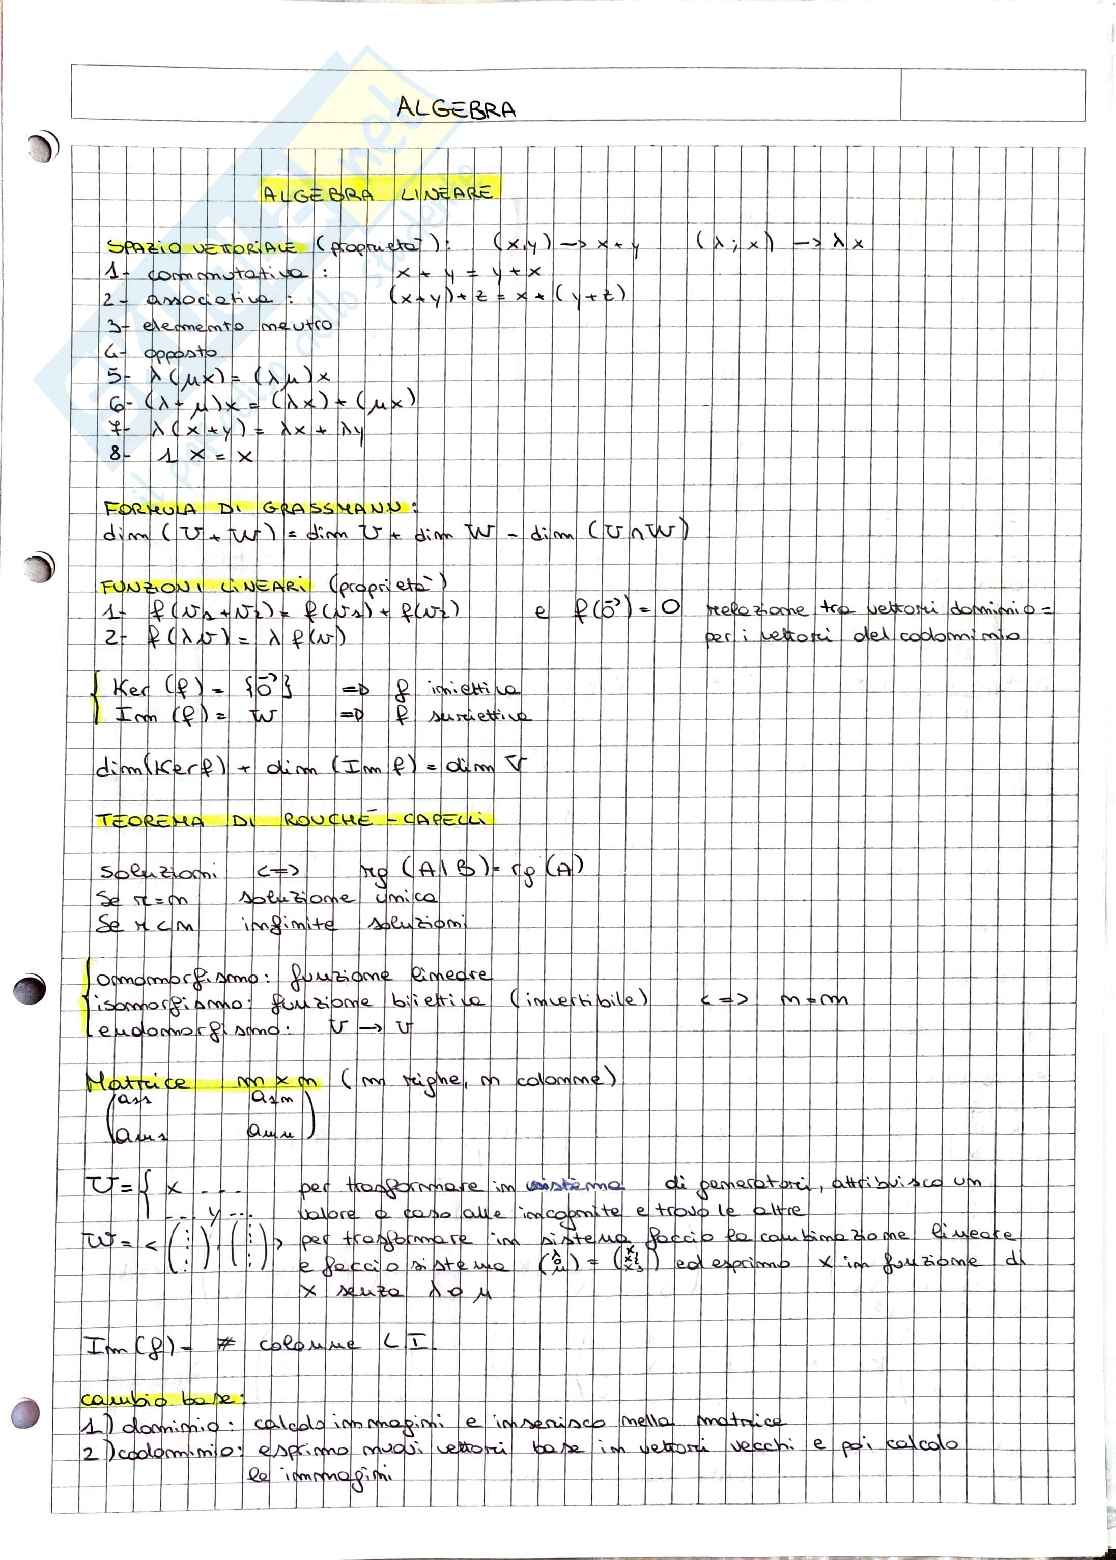 ALGEBRA
ALGEBRA LINEARE
SPAZIO VETTORIALE (proprietà): (x,y) → x+y (λ; x) → λx
1- commutativa: x + y = y + x
2- associativa: (x+y)+z = x+(y+z)
3- elemento neutro
4- opposto
5- λ(μx) = (λμ)x
6- (λ+μ)x = (λx)+(μx)
7- λ(x+y) = λx + λy
8- 1 x = x
FORMULA DI GRASSMANN:
dim (V+W) = dim V + dim W - dim (V∩W)
FUNZIONI LINEARI (proprietà)
1- f(v1+v2) = f(v1) + f(v2) e f(0⃗) = 0 relazione tra vettori dominio =
2- f(λv) = λ f(v) per i vettori del codominio
Ker (f) = {0⃗} => f iniettiva
Im (f) = W => f suriettiva
dim(Ker f) + dim (Im f) = dim V
TEOREMA DI ROUCHÉ-CAPELLI
soluzioni <=> rg (A|B) = rg (A)
Se r=n soluzione unica
Se r<n infinite soluzioni
omomorfismo: funzione lineare
isomorfismo: funzione biiettiva (invertibile) <=> m=n
endomorfismo: V → V
Matrice m x n (m righe, n colonne)
(a11 a1n
am1 amn)
V = { x ... per trasformare in sistema di generatori, attribuisco un
... y ... valore a caso alle incognite e trovo le altre
W = < ( ⋮ ), ( ⋮ ) > per trasformare in sistema faccio la combinazione lineare
e faccio sistema (λ μ) = (x1 x2 x3) ed esprimo x in funzione di
x senza λ o μ
Im(f) = # colonne LI
cambio base:
1) dominio: calcolo immagini e inserisco nella matrice
2) codominio: esprimo nuovi vettori base in vettori vecchi e poi calcolo
le immagini